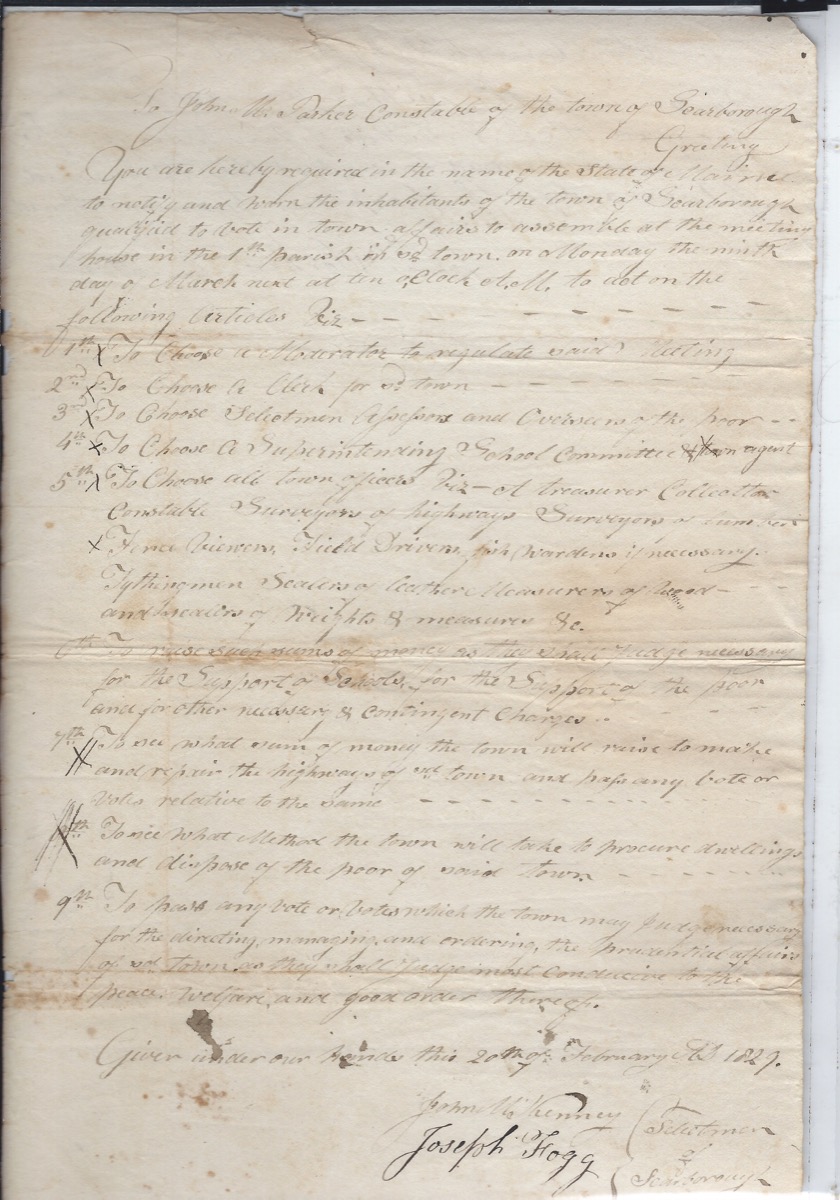 To John M. Parker Constable of the town of Scarborough
Greeting
You are hereby required in the name of the State of Maine
to notify and warn the inhabitants of the town of Scarborough
qualified to vote in town affairs to assemble at the meeting
house in the 1th parish in sd town. on Monday the ninth
day of March next at ten o,Clock A.M. to act on the
following Articles Viz
1th x To Choose a Moderator to regulate said Meeting
2nd x To Choose A Clerk for sd town
3rd x To Choose Selectmen Assessors and Overseers of the poor
4th x To Choose A Superintending School Committee & town agent
5th x To Choose all town officers Viz - A treasurer Collector
Constable Surveyors of highways Surveyors of lumber
x Fence Viewers, Field Drivers, fish Wardens if necessary.
Tythingmen Sealers of leather Measurers of Wood
and Sealers of Weights & measures &c.
6th To raise such sums of money as they shall judge necessary
for the Support of Schools, for the Support of the poor
and for other necessary & Contingent Charges
7th To see what sum of money the town will raise to make
and repair the highways of sd town and pass any vote or
votes relative to the same
8th To see what Method the town will take to procure dwellings
and dispose of the poor of said town
9th To pass any vote or votes which the town may judge necessary
for the directing, managing, and ordering, the prudential affairs
of sd town as they shall judge most Conducive to the
peace Welfare, and good order thereof.
Given under our hands this 20th of February AD 1829.
John Kenney
Joseph Fogg
Selectmen
of
Scarborough